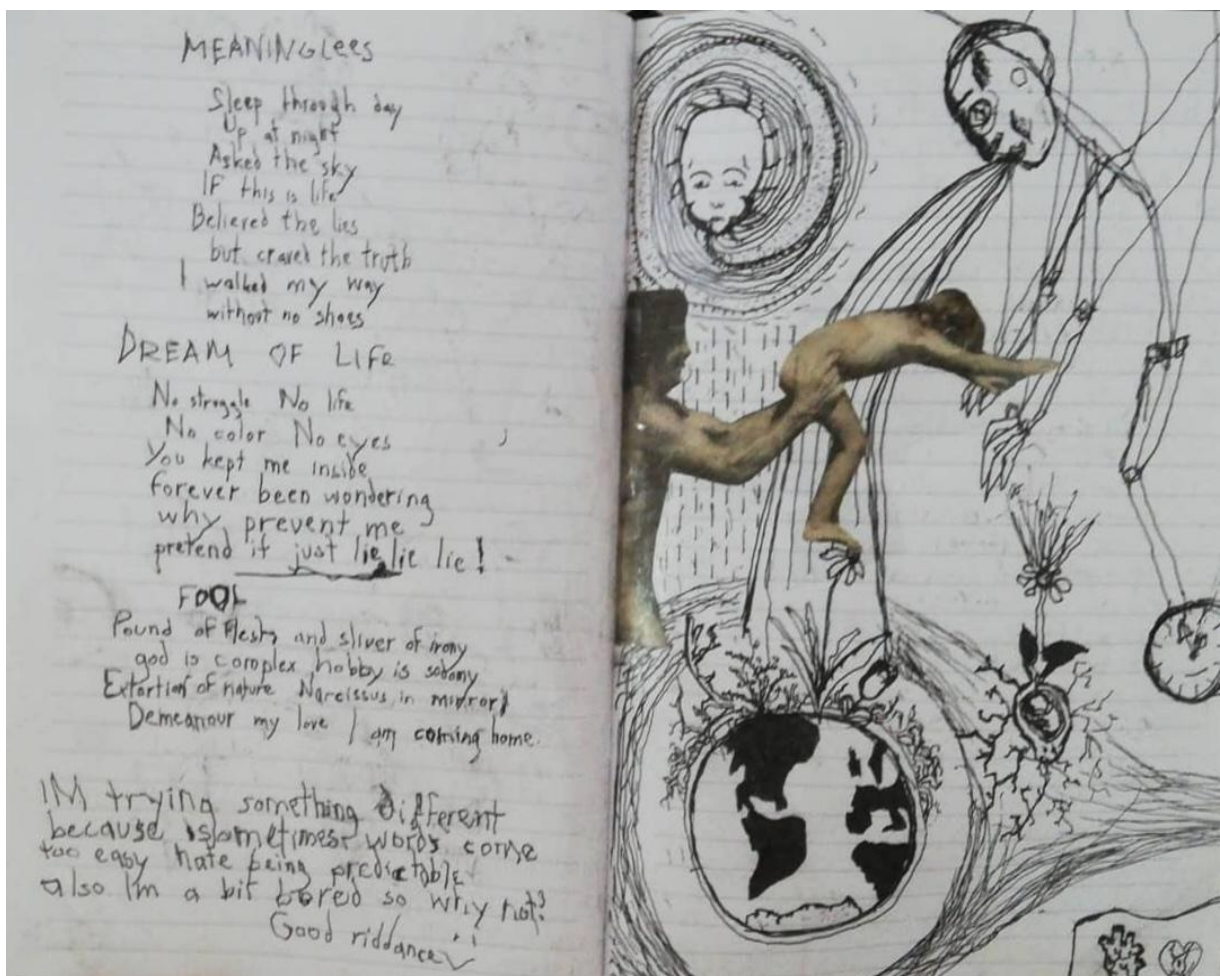 MEANINGLEES
Sleep through day
Up at night
Asked the sky
IF this is life
Believed the lies
but craved the truth
I walked my way
without no shoes
DREAM OF LIFE
No struggle No life
No color No eyes
You kept me inside
forever been wondering
why prevent me
pretend it just lie lie lie!
FOOL
Pound of flesh and sliver of irony
god is complex hobby is sodomy
Extortion of nature Narcissus in mirror
Demeanour my love I am coming home.
IM trying something different
because sometimes words come
too easy hate being predictable
also I'm a bit bored so why not?
Good riddance